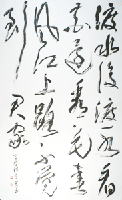 渡水復渡水看
花還看花春
風江上路不覺
到君家